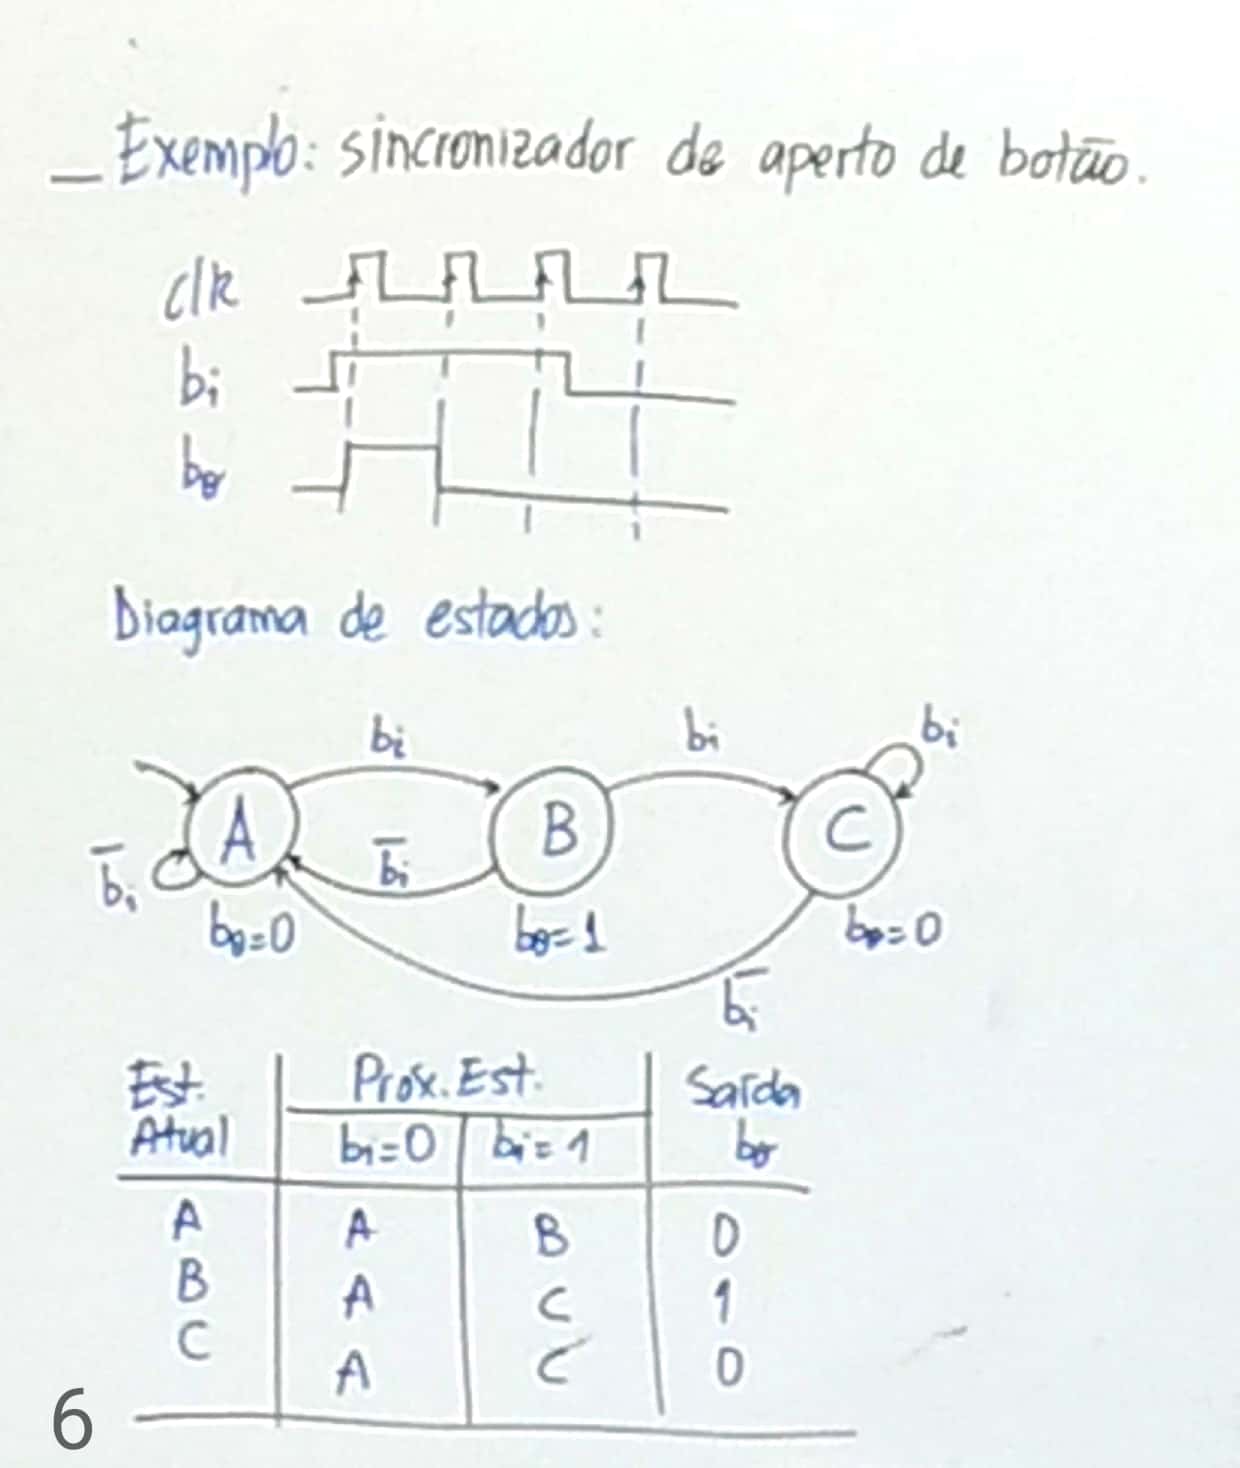 Exemplo: sincronizador de aperto de botão.
clk
bi
bo
Diagrama de estados:
bi bi bi
A B C
b̅i b̅i
bo=0 bo=1 bo=0
b̅i
Est. Atual Próx. Est. Saída
bi=0 bi=1 bo
A A B 0
B A C 1
C A C 0
6